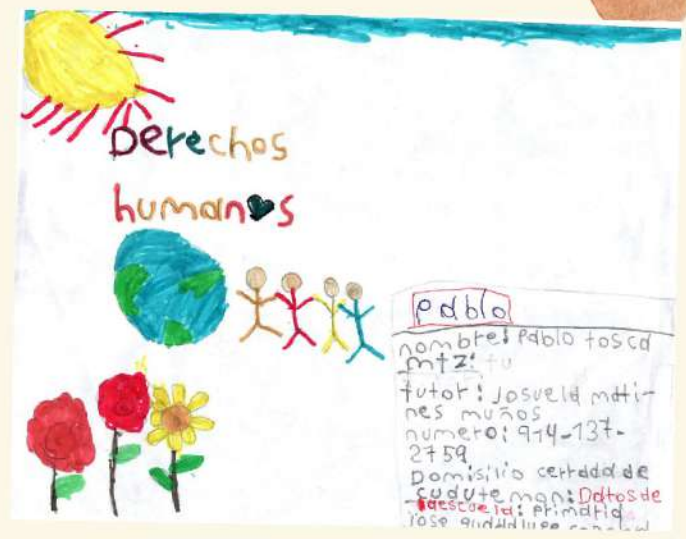 Derechos
humanos
Pablo
nombre: Pablo tosca
mtz: tu
tutor: Josuela mati-
nes muños
numero: 914-137-
2759
Domisilio cerrada de
cuduteman: Datos de
la escuela: Primaria
Jose guadalupe